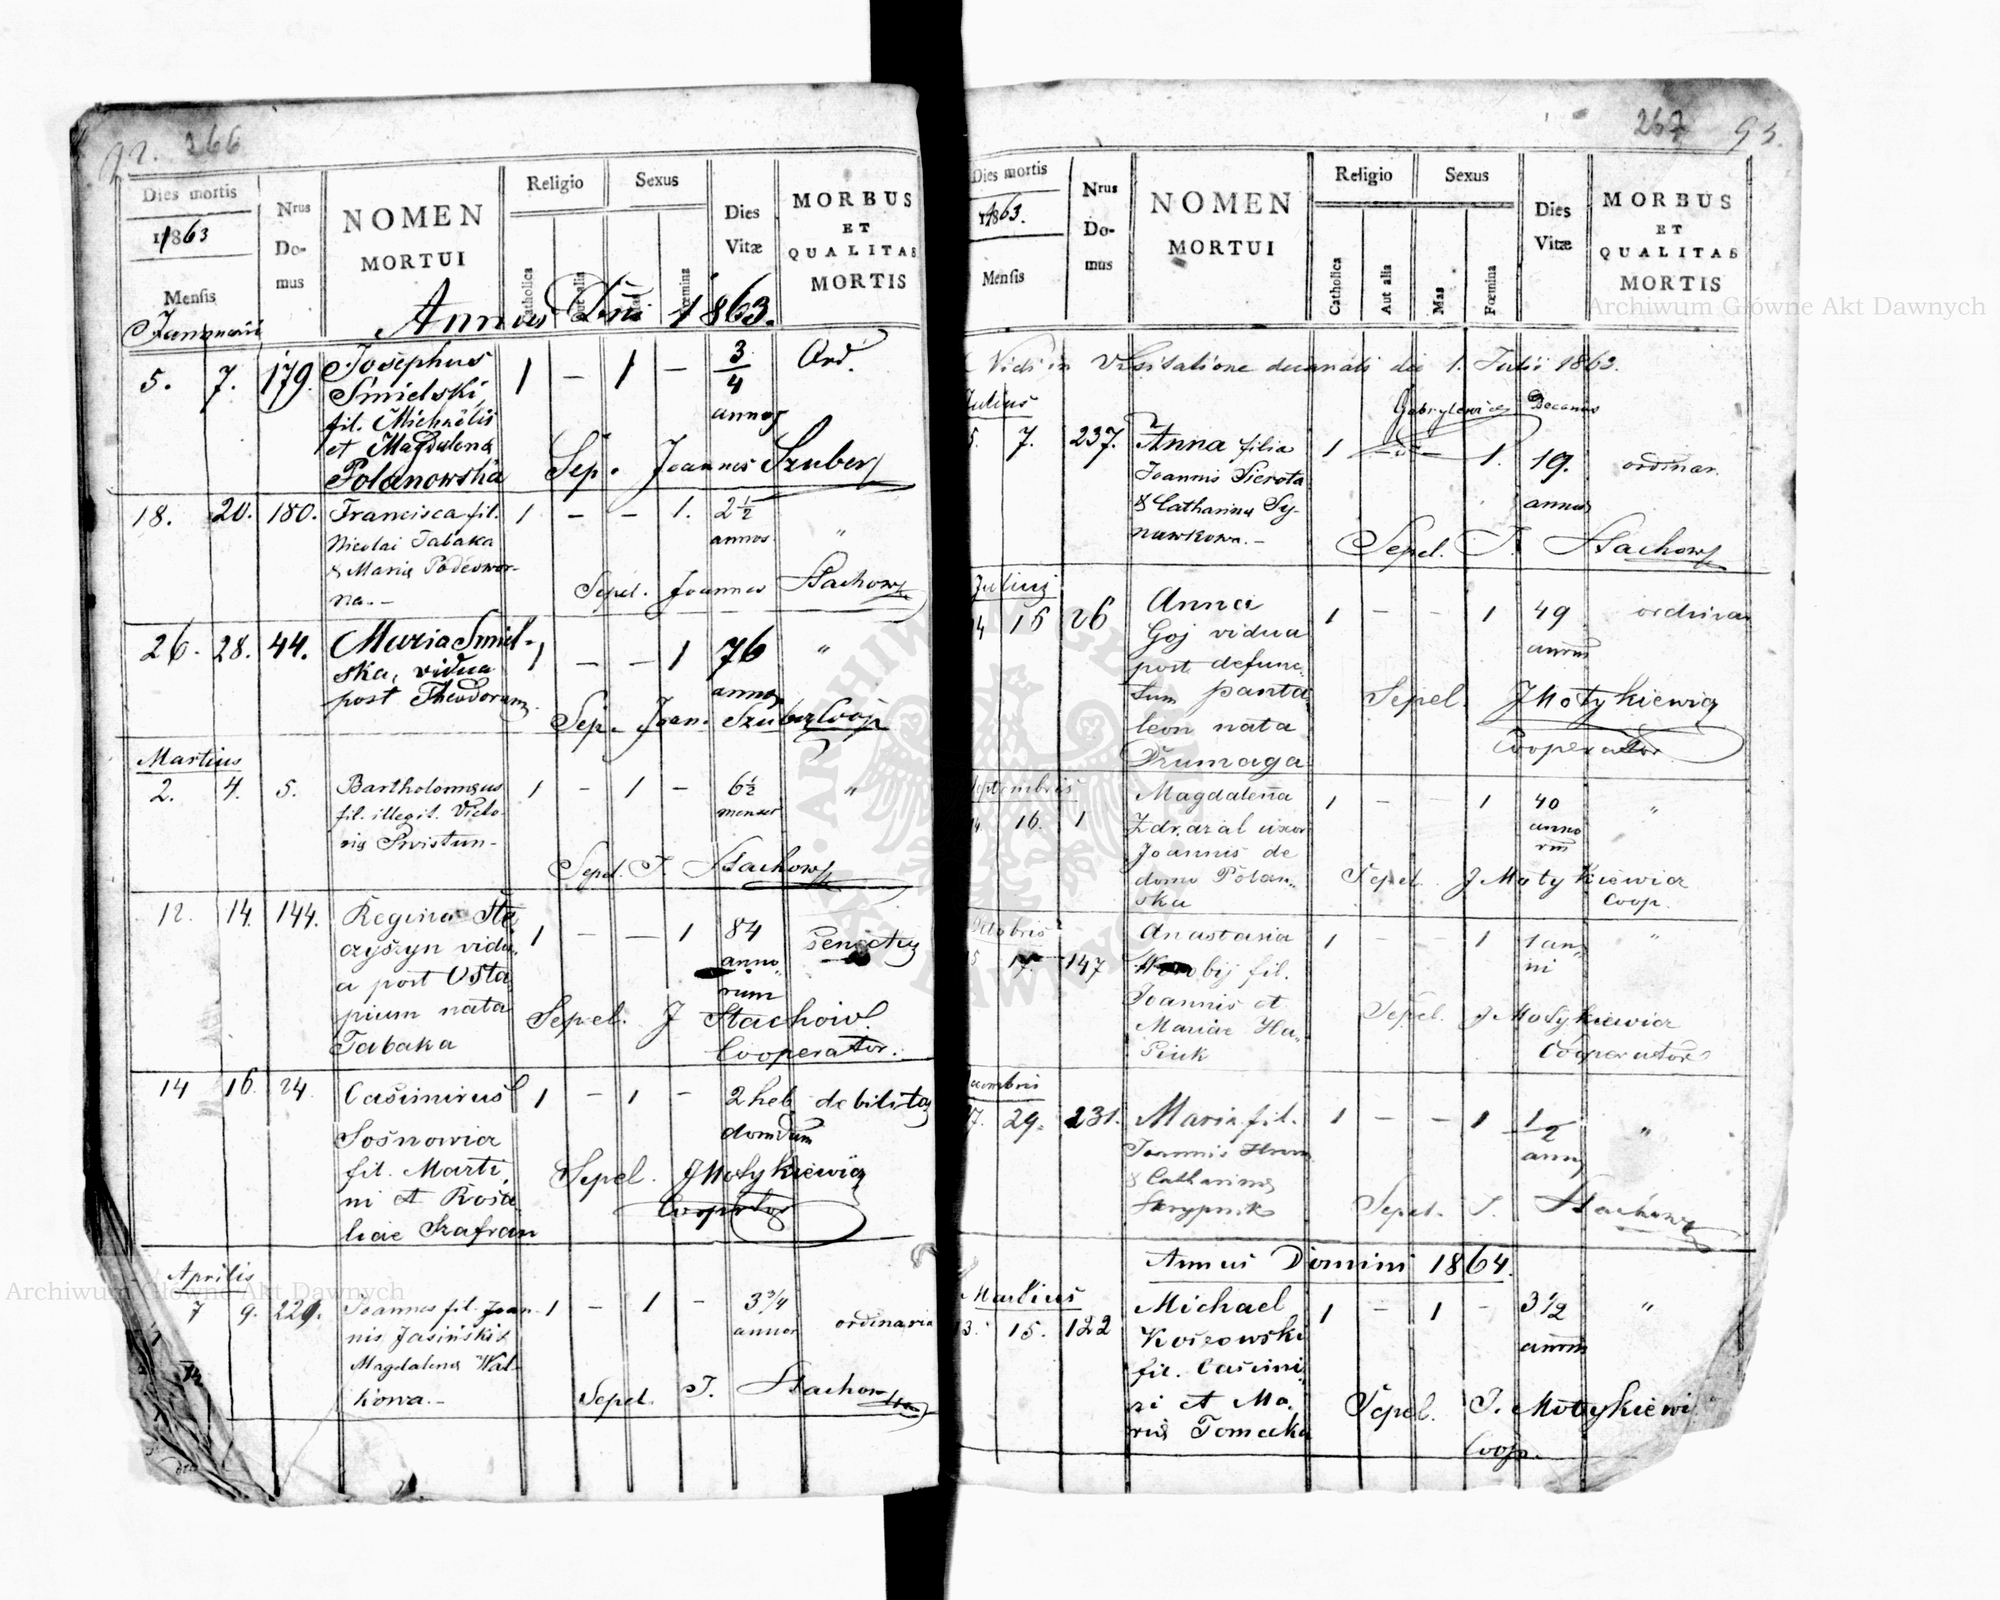 92. 266
Dies mortis
1863
Mensis
Nrus
Do-
mus
NOMEN
MORTUI
Religio
Sexus
Catholica
Aut alia
Mas
Fœmina
Dies
Vitæ
MORBUS
ET
QUALITAS
MORTIS
Januarii
Annus Dni 1863.
5. 7. 179. Josephus 1 – 1 – 3/4 Ord.
Smielski,
fil. Michaëlis annos
et Magdalena
Polanowska Sep. Joannes Szuber
18. 20. 180. Francisca fil. 1 – – 1. 2 1/2 "
Nicolai Tabaka annos
& Maria Podeswor-
na.– Sepel. Joannes Stachow
26. 28. 44. Maria Smiel- 1 – – 1 76 "
ska, vidua annos
post Theodorum. Sep. Joan. Szuber Coop
Martius
2. 4. 5. Bartholomæus 1 – 1 – 6 1/2 "
fil. illegit. Victo- menses
riæ Swistun–
Sepel. J. Stachow
12. 14. 144. Regina Ste 1 – – 1 84 senectus
czyszyn vidu- anno-
a post Osta rum
pium nata Sepel. J Stachow.
Tabaka Cooperator.
14 16. 24. Casimirus 1 – 1 – 2 heb debilitas
Sosnowicz domdum
fil. Marti,
ni et Rosa Sepel. J Motykiewicz
liae Szafran Cooperator
Aprilis
7 9. 229. Joannes fil. Joan- 1 – 1 – 3 3/4 ordinaria
nis Jasiński & annor
Magdalena Wal-
kowa.– Sepel. J. Stachow
267 93.
Dies mortis
1863.
Mensis
Nrus
Do-
mus
NOMEN
MORTUI
Religio
Sexus
Catholica
Aut alia
Mas
Fœmina
Dies
Vitæ
MORBUS
ET
QUALITAS
MORTIS
Vidi in visitatione decanali die 1. Julii 1863.
Gabrylewicz Decanus
Julius
5. 7. 237. Anna filia 1 – – 1. 19. ordinar.
Joannis Pierota annos
& Catharina Sy-
nawkowa.– Sepel. J. Stachow
Julius
14 15 26 Anna 1 – – 1 49 ordinar
Goj vidua annor
post defunc-
tum panta Sepel. J Motykiewicz
leon nata Cooperator
Przumaga
Septembris
14. 16. 1 Magdalena 1 – – 1 40 "
Zdrazal uxor anno
Joannis de rm
domo Polan- Sepel J Motykiewicz
ska Coop.
Octobris
15 17. 147 Anastasia 1 – – 1 1 an- "
Worobij fil. ni
Joannis et Sepel. J Motykiewicz
Mariae Ha- Cooperator
siuk
Decembris
27. 29. 231. Maria fil. 1 – – 1 1/2 "
Joannis Hrom anny
& Catharina
Skrypnik Sepel. J. Stachow
Annus Domini 1864.
Martius
13. 15. 122 Michael 1 – 1 – 3 1/2 "
Kosrowski annor
fil. Casimi,
ri et Ma, Sepel. J. Motykiewi
riæ Tomecka Coop.
Archiwum Główne Akt Dawnych
Archiwum Główne Akt Dawnych